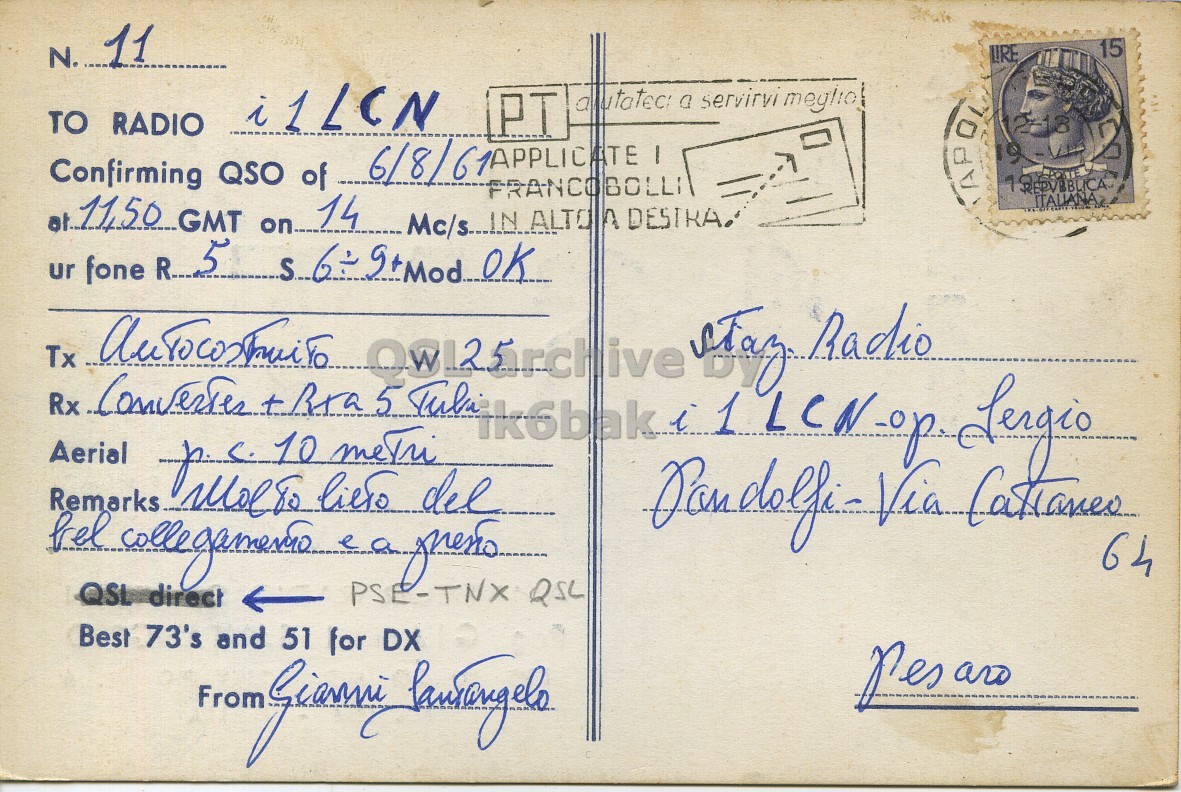 N. 11
TO RADIO i 1 LCN
Confirming QSO of 6/8/61
at 11,50 GMT on 14 Mc/s
ur fone R 5 S 6÷9+ Mod OK
Tx Autocostruito W 25
Rx Converter + Rxa 5 Tubi
Aerial p. c. 10 metri
Remarks Molto lieto del
bel collegamento e a presto
QSL direct ← PSE-TNX QSL
Best 73's and 51 for DX
From Gianni Santangelo
PT aiutateci a servirvi meglio
APPLICATE I
FRANCOBOLLI
IN ALTO A DESTRA
LIRE 15
12-13
19
POSTE
REPVBBLICA
ITALIANA
Staz. Radio
i 1 LCN - op. Sergio
Pandolfi - Via Cattaneo
64
Pesaro
QSL archive by
ik6bak